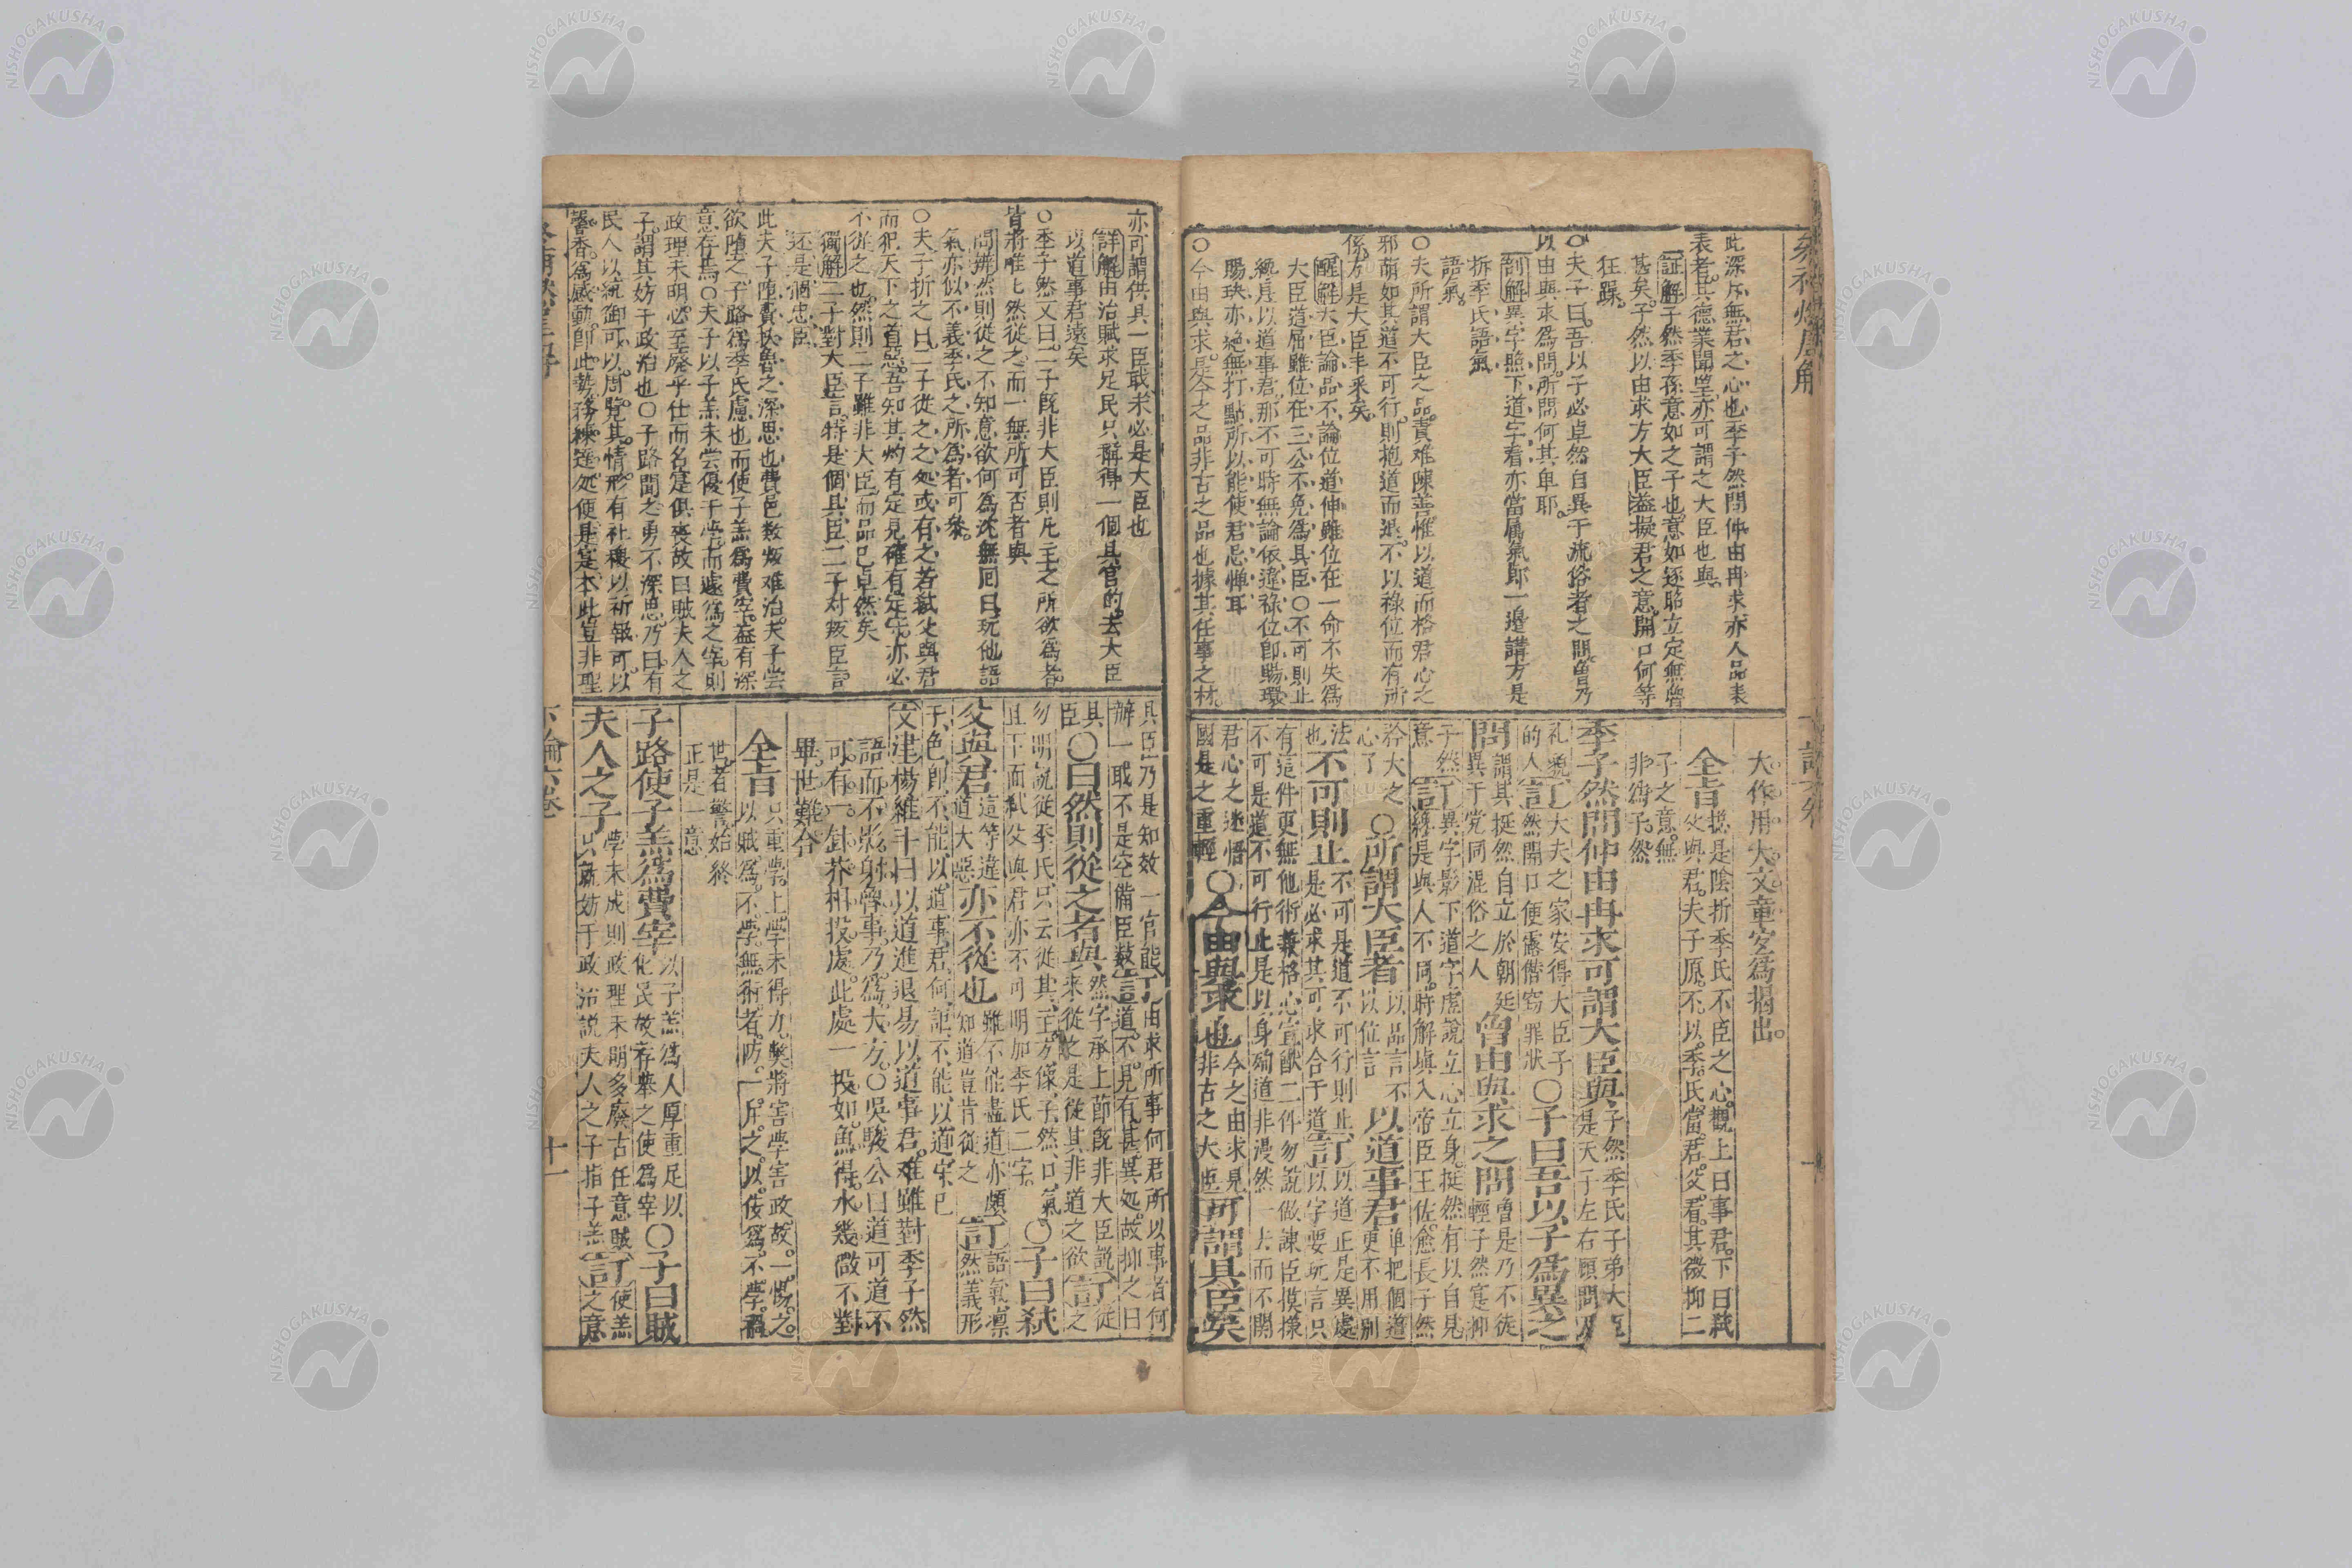 此深斥無君之心也季子然問仲由冉求亦人品表
表者其德業聞望亦可謂之大臣也與
証解子然季孫意如之子也意如逐昭立定無君
甚矣子然以由求方大臣蓋擬君之意開口何等
狂躁
○夫子曰吾以子必卓然自異于流俗者之問曾乃
以由與求為問所問何其卑耶
剖解異字照下道字看亦當属氣節一邊講方是
拆季氏語氣
語氣
○夫所謂大臣之品責难陳善惟以道而格君心之
邪萠如其道不可行則抱道而退不以祿位而有所
係方是大臣丰采矣
醒解大臣論品不論位道伸雖位在一命不失為
大臣道屈雖位在三公不免為具臣○不可則止
纔見以道事君那不可時無論依違祿位即賜環
賜玦亦絕無打點所以能使君忌憚耳
○今由與求是今之品非古之品也據其任事之材
大作用大文章宜為揭出
全旨 總是陰折季氏不臣之心觀上曰事君下曰弒
父與君夫子原不以季氏當君父看其微抑二
子之意無
非為子然
季子然問仲由冉求可謂大臣與 子然季氏子弟大臣
是天子左右顧問及
礼貌 的人 訂 大夫之家安得大臣子
然開口便露僭窃罪狀 ○子曰吾以子為異之
問 謂其挺然自立於朝廷
異于党同混俗之人 曾由與求之問 曾是乃不徒
輕子然寔抑
子然
意 訂 異字影下道字虛說立心立身挺然有以自見
緣是與人不同時解填入帝臣王佐愈長子然
矜大之
心了 ○所謂大臣者 以品言不
以位言 以道事君 单把個道
更不用別
法
也 不可則止 不可是道不可行則止
是必求其可求合于道 訂 以道正是異處
以字要玩言只
有這件更無他術教格心宣猷二件勿說做諫臣摸樣
不可是道不可行止是以身殉道非漫然一去而不開
君心之迷悟
國是之重輕 ○今由與求也 今之由求見
非古之大臣 可謂具臣矣
亦可謂供具一臣耿未必是大臣也
詳解由治賦求足民只稱得一個具官的去大臣
以道事君遠矣
○季子然又曰二子既非大臣則凡主之所欲為者
皆將唯唯然從之而一無所可否者與
問辨然則從之不知意欲何為沈無回曰玩他語
氣亦似不義季氏之所為者可參
○夫子折之曰二子從之之処或有之若弒父與君
而犯天下之首惡吾知其灼有定見確有定守亦必
不從之也然則二子雖非大臣而品已卓然矣
獨解二子對大臣言特是個具臣二子对叛臣言
還是個忠臣
此夫子陞費扶魯之深思也費邑数叛难治夫子尝
欲堕之子路為季氏慮也而使子羔為費宰蓋有深
意存焉○夫子以子羔未尝優于学而遽為之宰則
政理未明必至廢乎仕而名寔俱喪故曰賊夫人之
子謂其妨于政治也○子路聞之勇不深思乃曰有
民人以統御可以周覽其情形有社稷以祈報可以
馨香為感動即此勢務練達処便是寔本此豈非聖
具臣乃是知效一官能
辦一职不是空備臣数 訂 由求所事何君所以事者何
道不見有甚異処故抑之曰
具
臣 ○曰然則從之者與 然字承上節既非大臣說
来從之是從其非道之欲 訂 從
之
勿明說從季氏只云從其主方像子然口氣
且下面弒父與君亦不可明加季氏二字 ○子曰弒
父與君 這等違
道大惡 亦不從也 雖不能盡道亦頗
知道豈肯從之 訂 語氣凛
然義形
于色即不能以道事君何詎不能以道守已
文達楊維斗曰以道進退易以道事君难雖對季子然
語而不影射魯事乃為大方○吳駿公曰道可道不
可有一針芥相投處此處一投如魚得水幾微不對
畢世難合
全旨 只重学上学未得力軟將害学害政故一慨之
以賊為不学無術者防一斥之以佞為不学者
世者警始終
正是一意
子路使子羔為費宰 以子羔為人厚重足以
化民故存举之使為宰 ○子曰賊
夫人之子 学未成則政理未明多廢古任意賊
只就妨于政治説夫人之子指子羔 訂 使羔
之意
下論六卷 十一